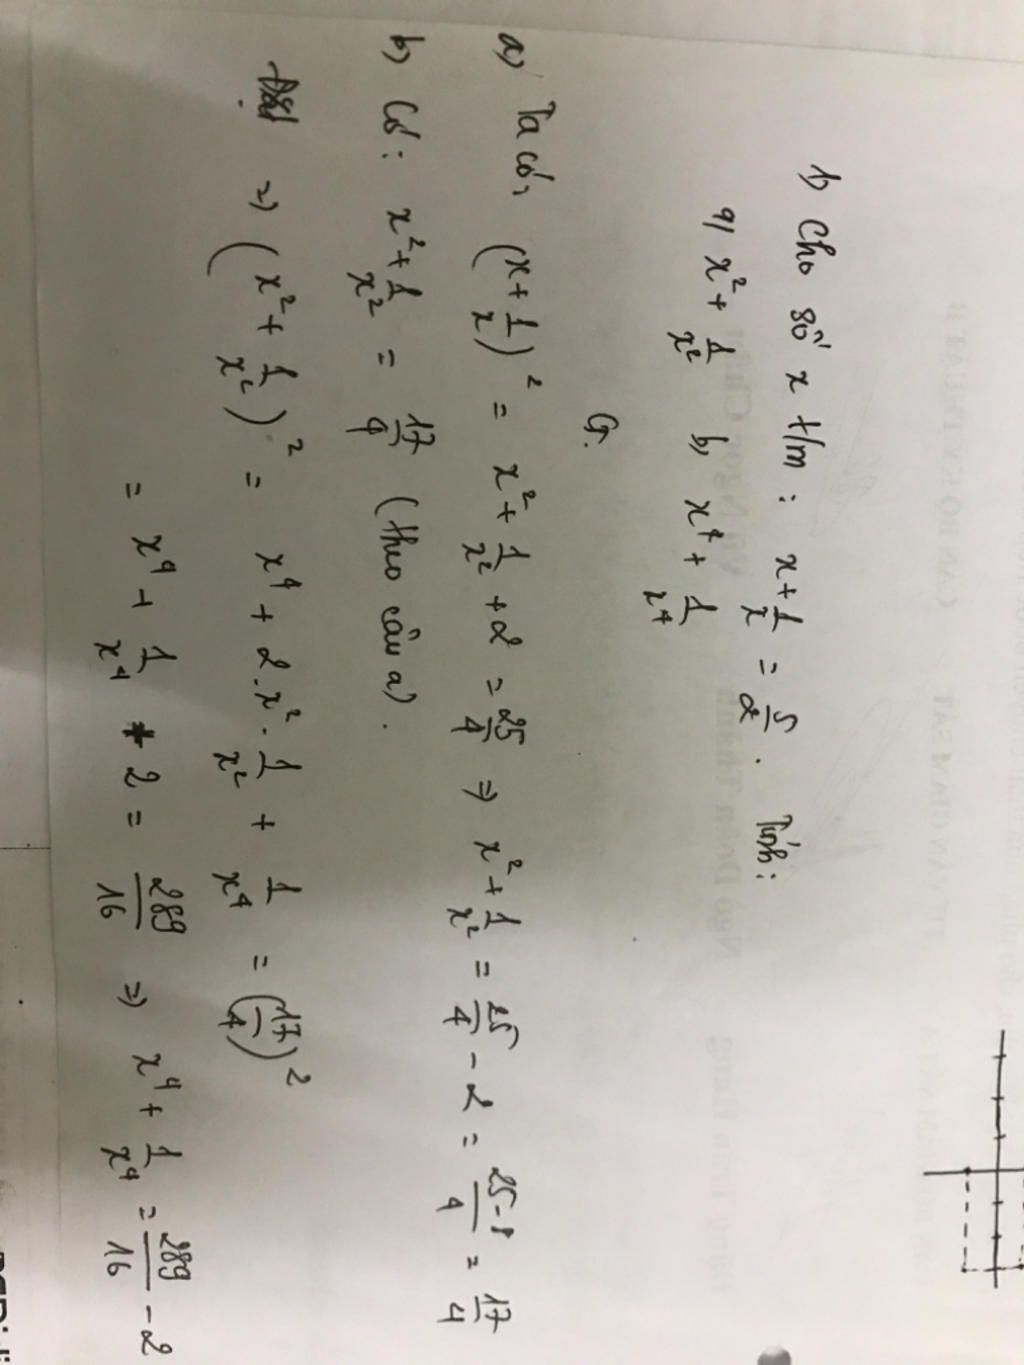 1) Cho số x t/m : x + 1/x = 5/2 . Tính :
a) x² + 1/x² b) x⁴ + 1/x⁴
G.
a) Ta có, (x + 1/x)² = x² + 1/x² + 2 = 25/4 => x² + 1/x² = 25/4 - 2 = 25-8/4 = 17/4
b) Có : x² + 1/x² = 17/4 (theo câu a) .
=> (x² + 1/x²)² = x⁴ + 2.x². 1/x² + 1/x⁴ = (17/4)²
= x⁴ + 1/x⁴ + 2 = 289/16 => x⁴ + 1/x⁴ = 289/16 - 2